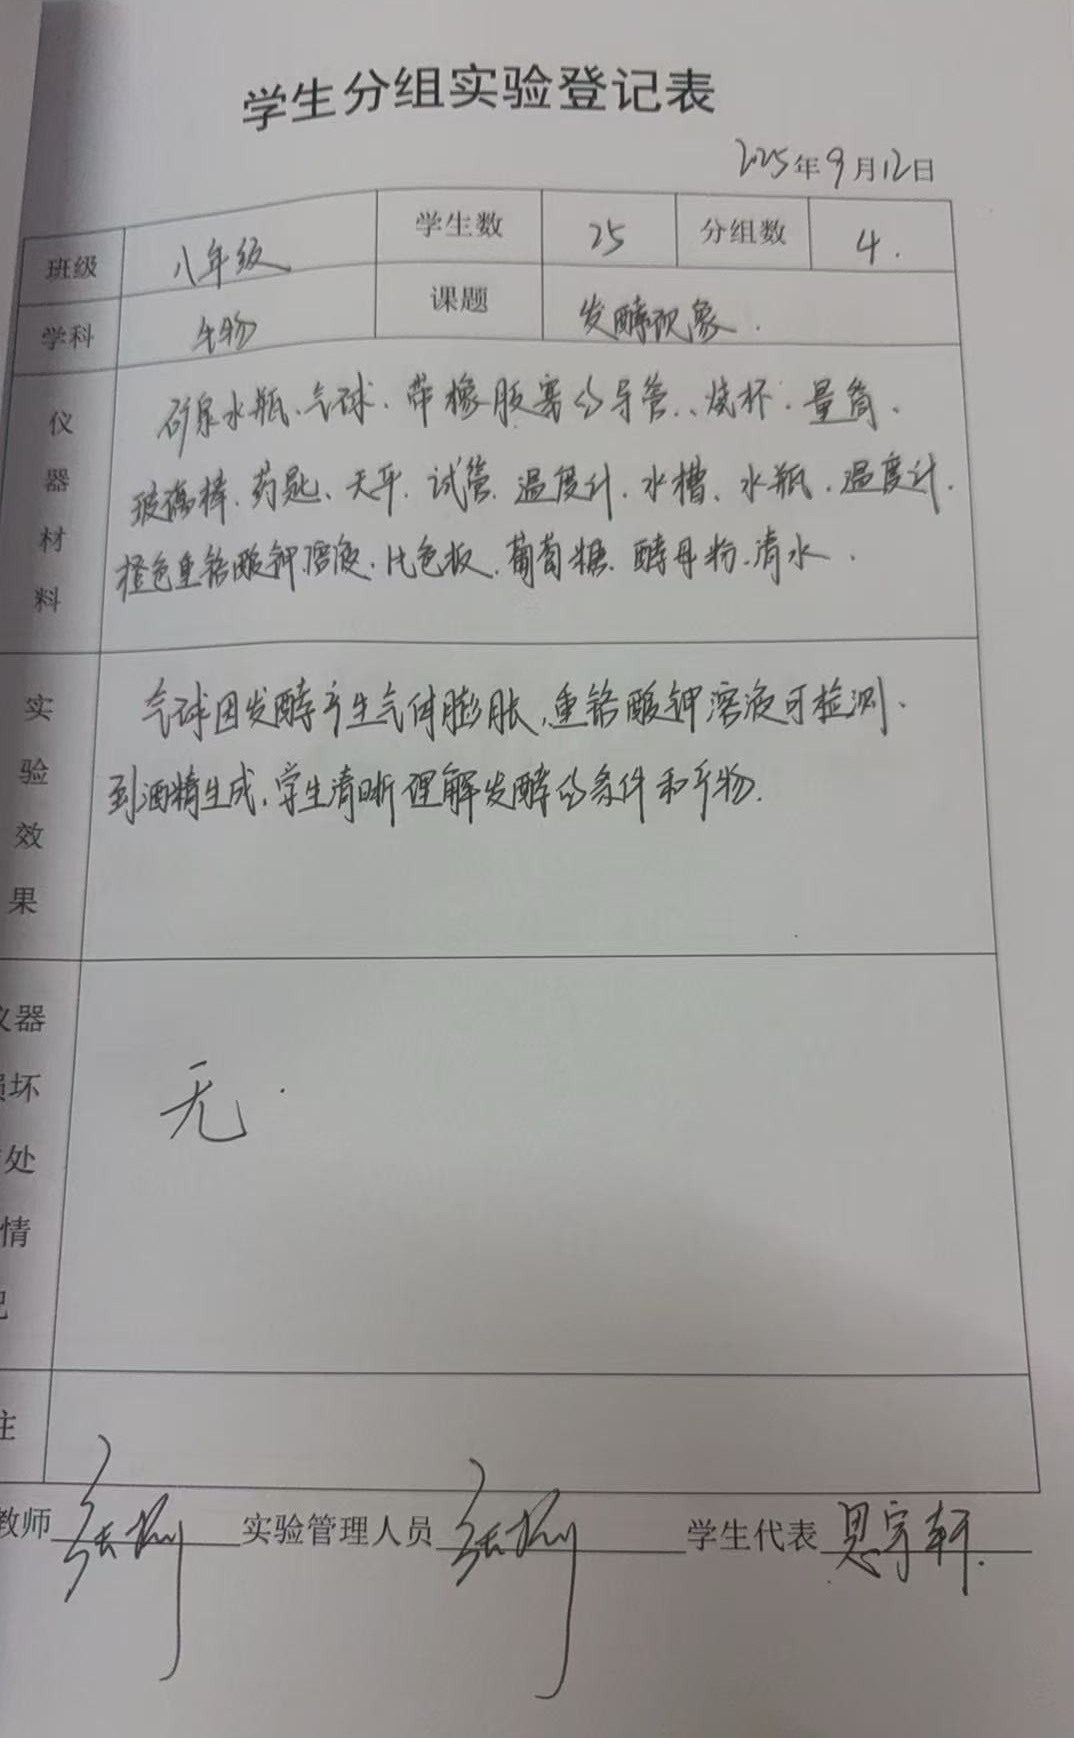 学生分组实验登记表
2025年9月12日
班级 八年级 学生数 25 分组数 4.
学科 生物 课题 发酵现象.
仪器材料
矿泉水瓶、气球、带橡胶塞的导管、、烧杯、量筒、
玻璃棒、药匙、天平、试管、温度计、水槽、水瓶、温度计、
橙色重铬酸钾溶液、比色板、葡萄糖、酵母粉、清水.
实验效果
气球因发酵产生气体膨胀,重铬酸钾溶液可检测
到酒精生成,学生清晰理解发酵的条件和产物.
器
坏
处
情
无.
注
教师 实验管理人员 学生代表 宇轩.